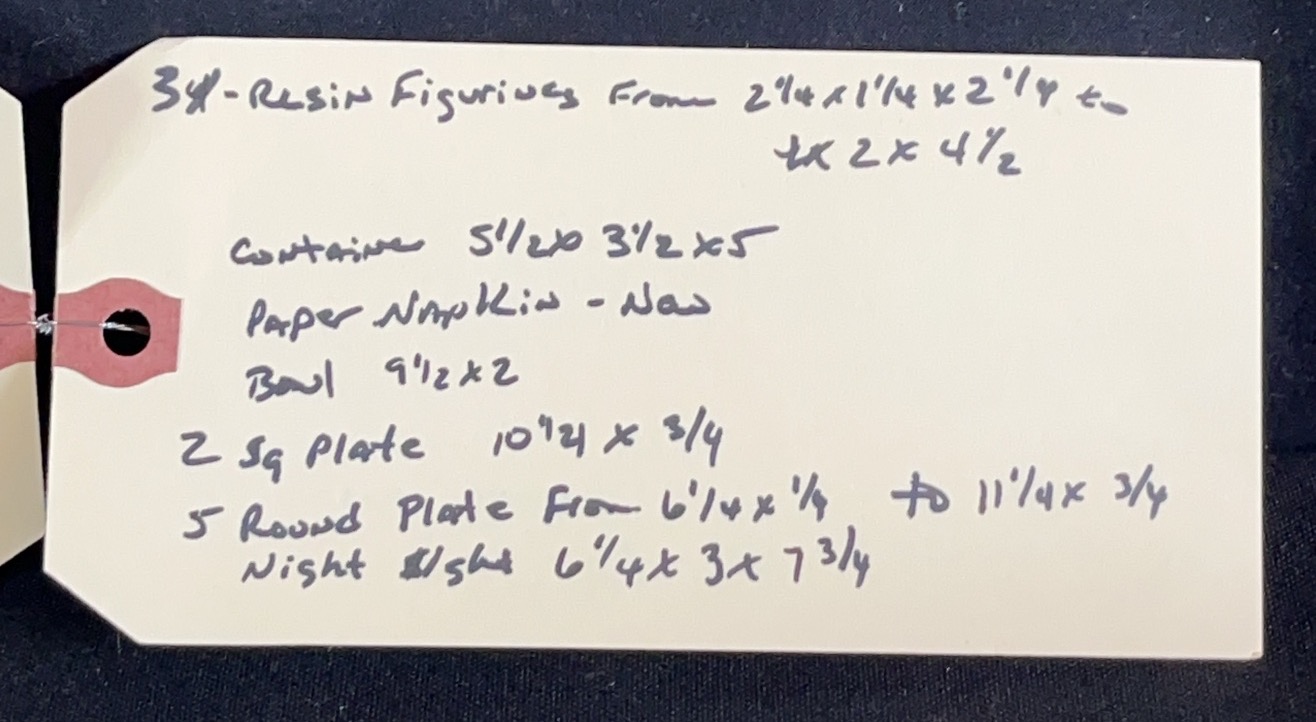 34-Resin Figurines From 2 1/4 x 1 1/4 x 2 1/4 to
x 2 x 4 1/2
Container 5 1/2 x 3 1/2 x 5
Paper Napkin - New
Bowl 9 1/2 x 2
2 Sq Plate 10 x 3/4
5 Round Plate From 6 1/4 x 1/4 to 11 1/4 x 3/4
Night 6 1/4 x 3 x 7 3/4